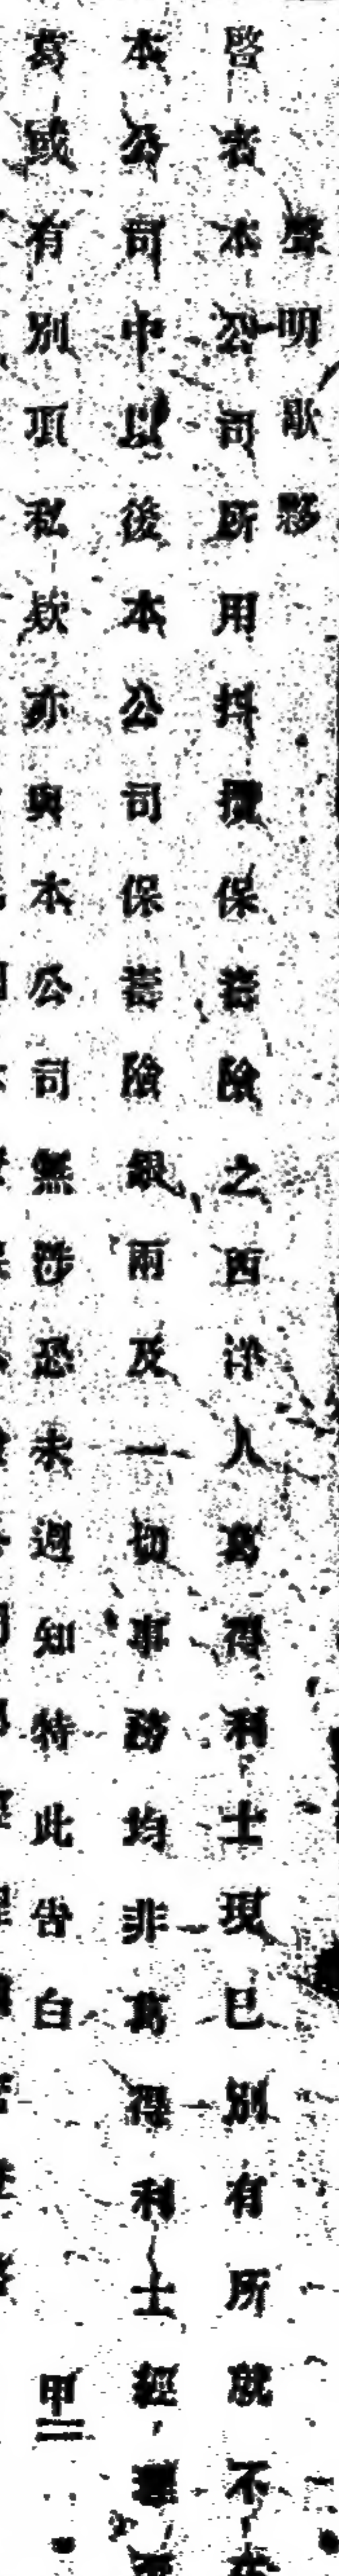 聲明歇夥
啓者本公司所用抖攬保壽險之西洋人葛得利士現已別有所就不在
本公司中以後本公司保壽險銀兩及一切事務均非葛得利士經
葛或有別項私欵亦與本公司無涉恐未週知特此告白
甲三